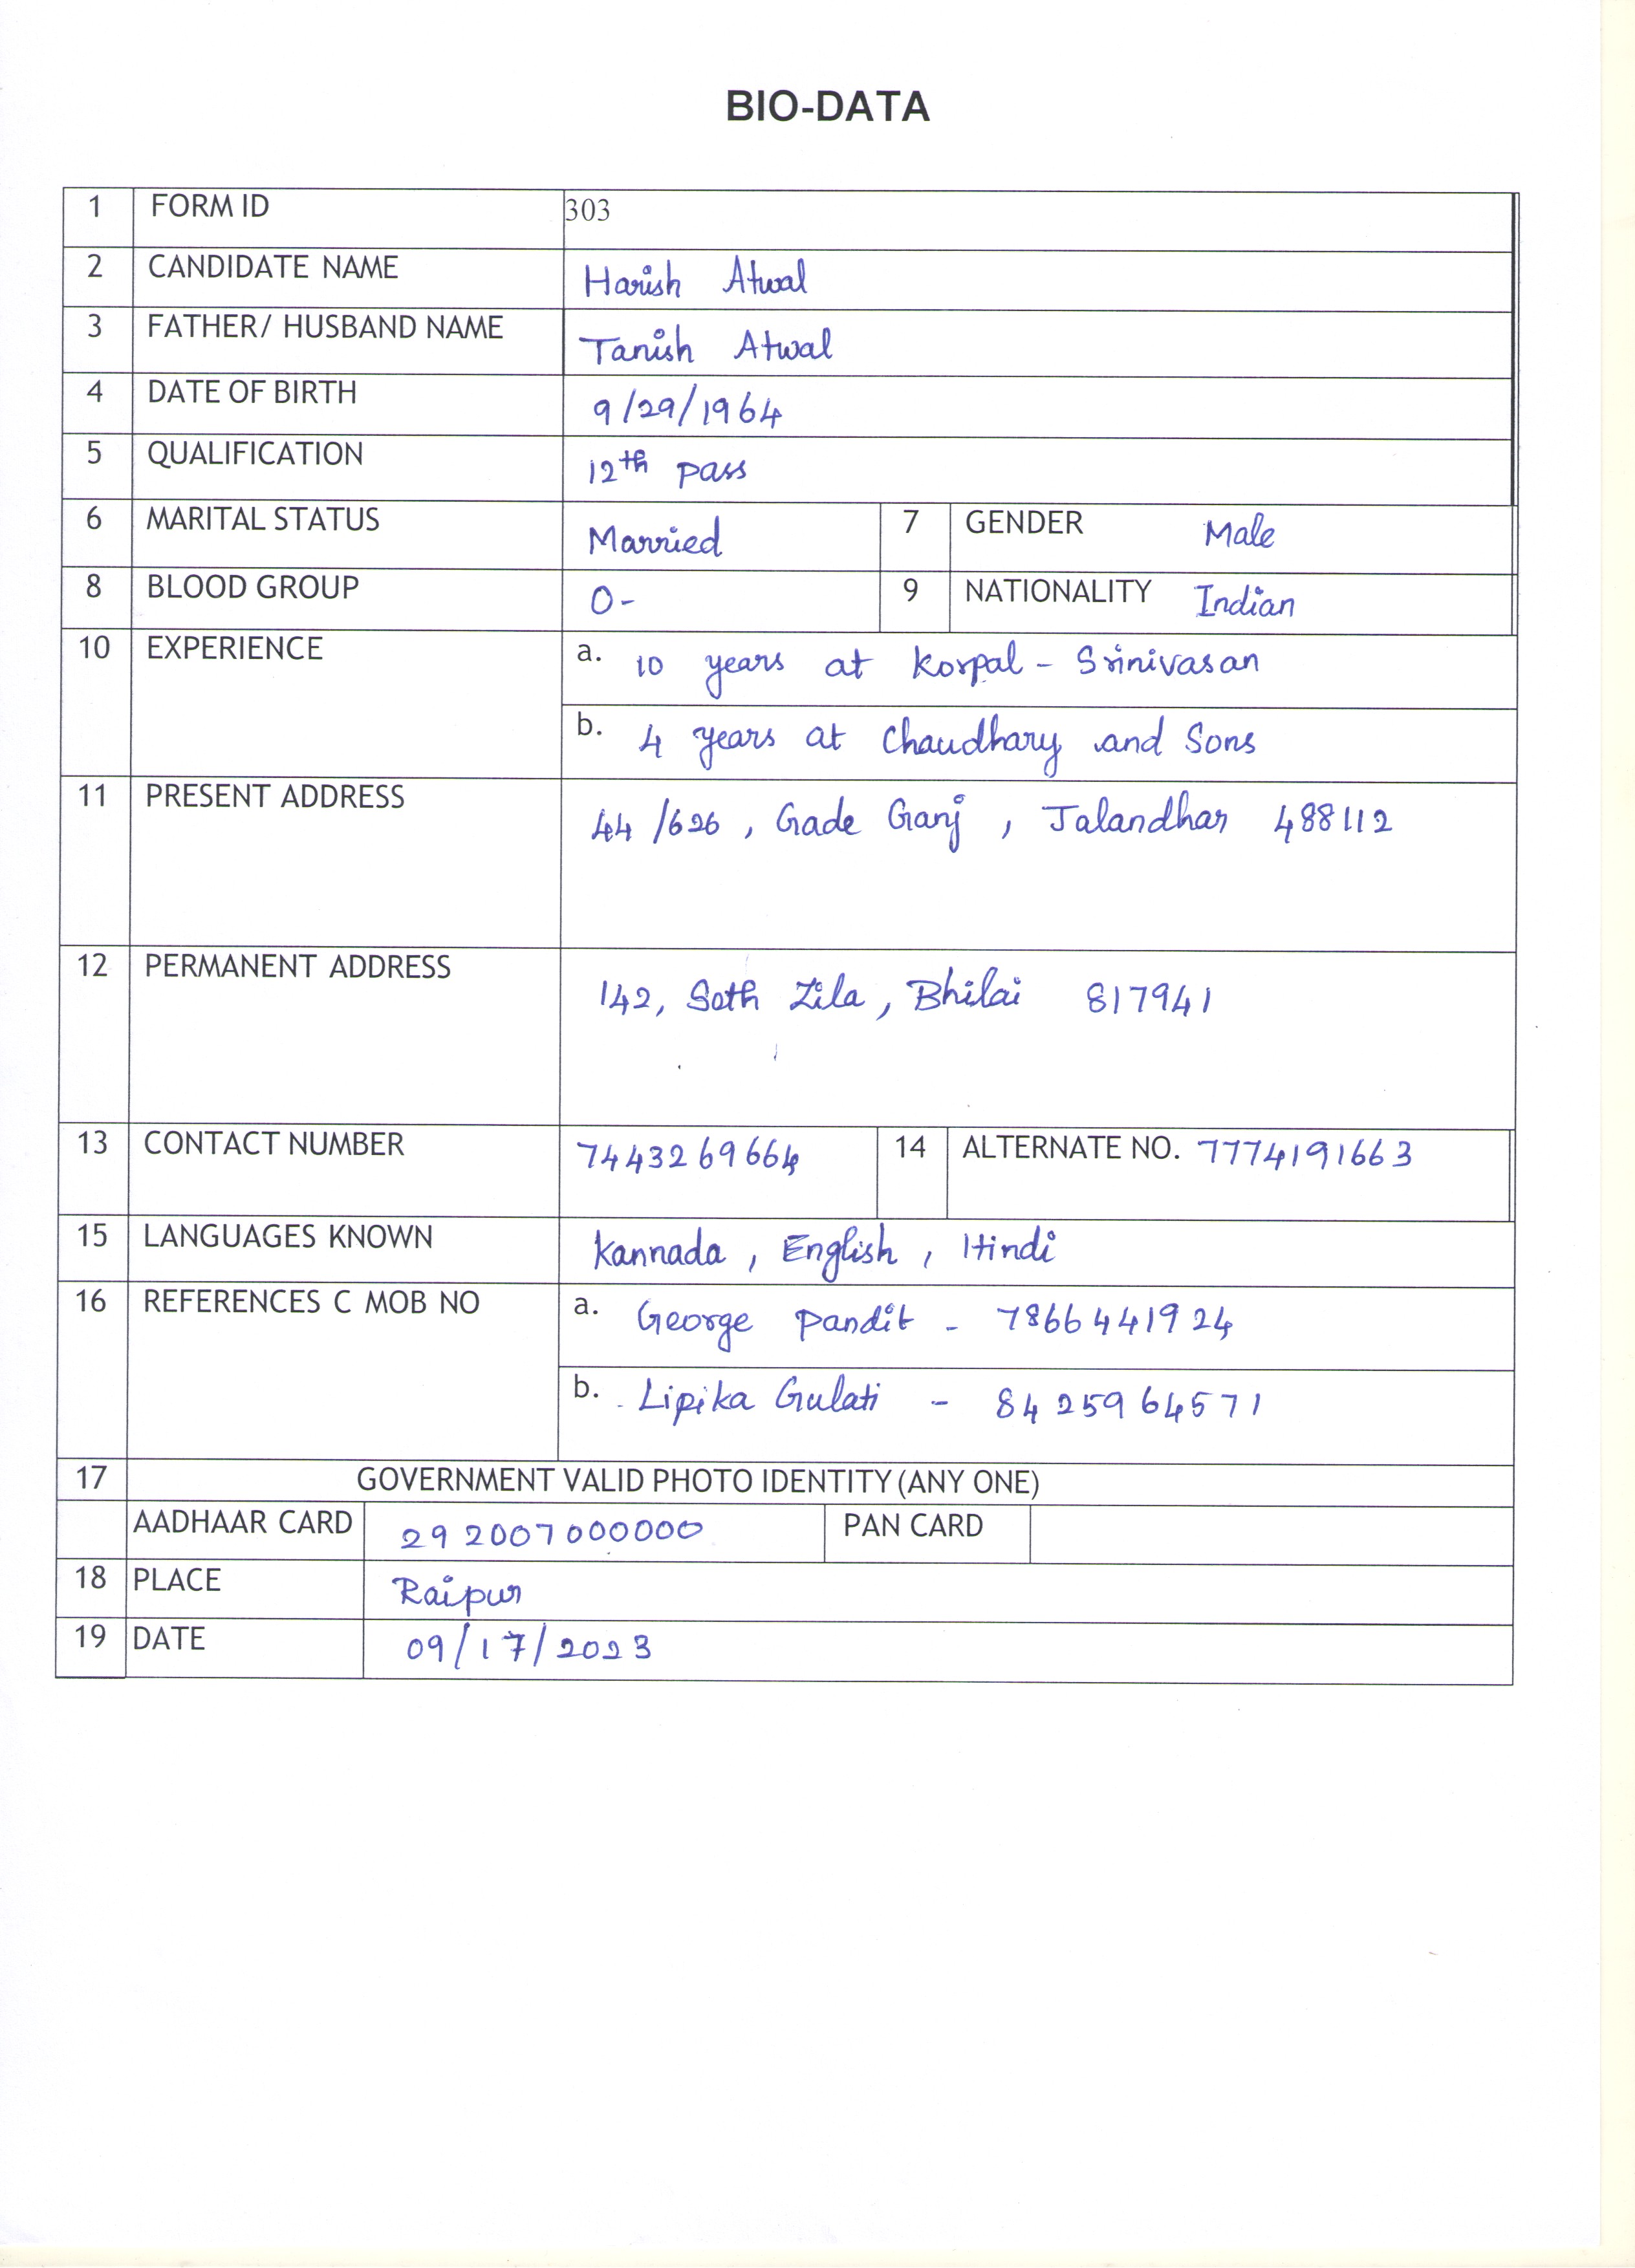 BIO-DATA
1 FORM ID 303
2 CANDIDATE NAME Harish Atwal
3 FATHER/ HUSBAND NAME Tanish Atwal
4 DATE OF BIRTH 9/29/1964
5 QUALIFICATION 12th pass
6 MARITAL STATUS Married 7 GENDER Male
8 BLOOD GROUP O- 9 NATIONALITY Indian
10 EXPERIENCE a. 10 years at Korpal - Srinivasan
b. 4 years at Chaudhary and Sons
11 PRESENT ADDRESS 44/626, Gade Ganj, Jalandhar 488112
12 PERMANENT ADDRESS 142, Seth Zila, Bhilai 817941
13 CONTACT NUMBER 7443269664 14 ALTERNATE NO. 7774191663
15 LANGUAGES KNOWN Kannada, English, Hindi
16 REFERENCES C MOB NO a. George Pandit - 7866441924
b. Lipika Gulati - 8425964571
17 GOVERNMENT VALID PHOTO IDENTITY (ANY ONE)
AADHAAR CARD 292007000000 PAN CARD
18 PLACE Raipur
19 DATE 09/17/2023